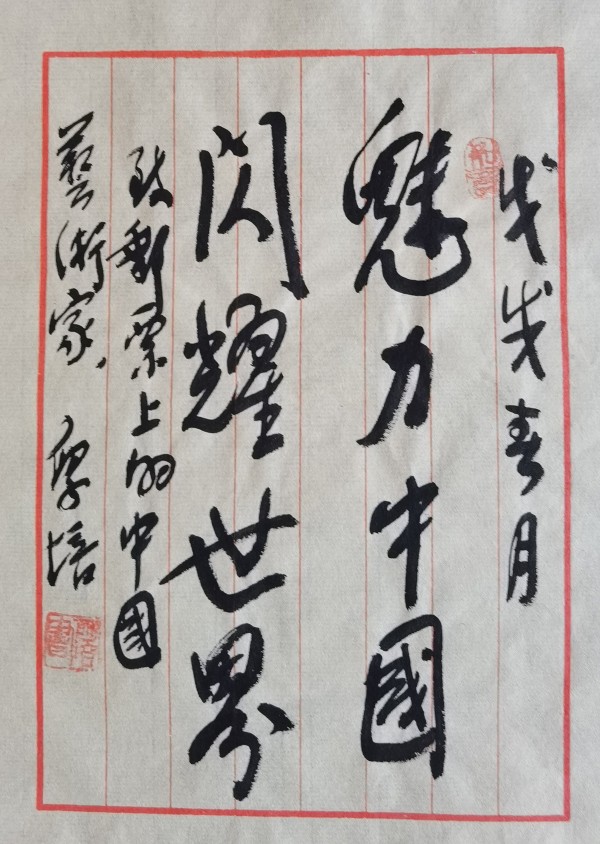 戊戌春月
魅力中國
閃耀世界
致郵票上的中國
藝術家 培